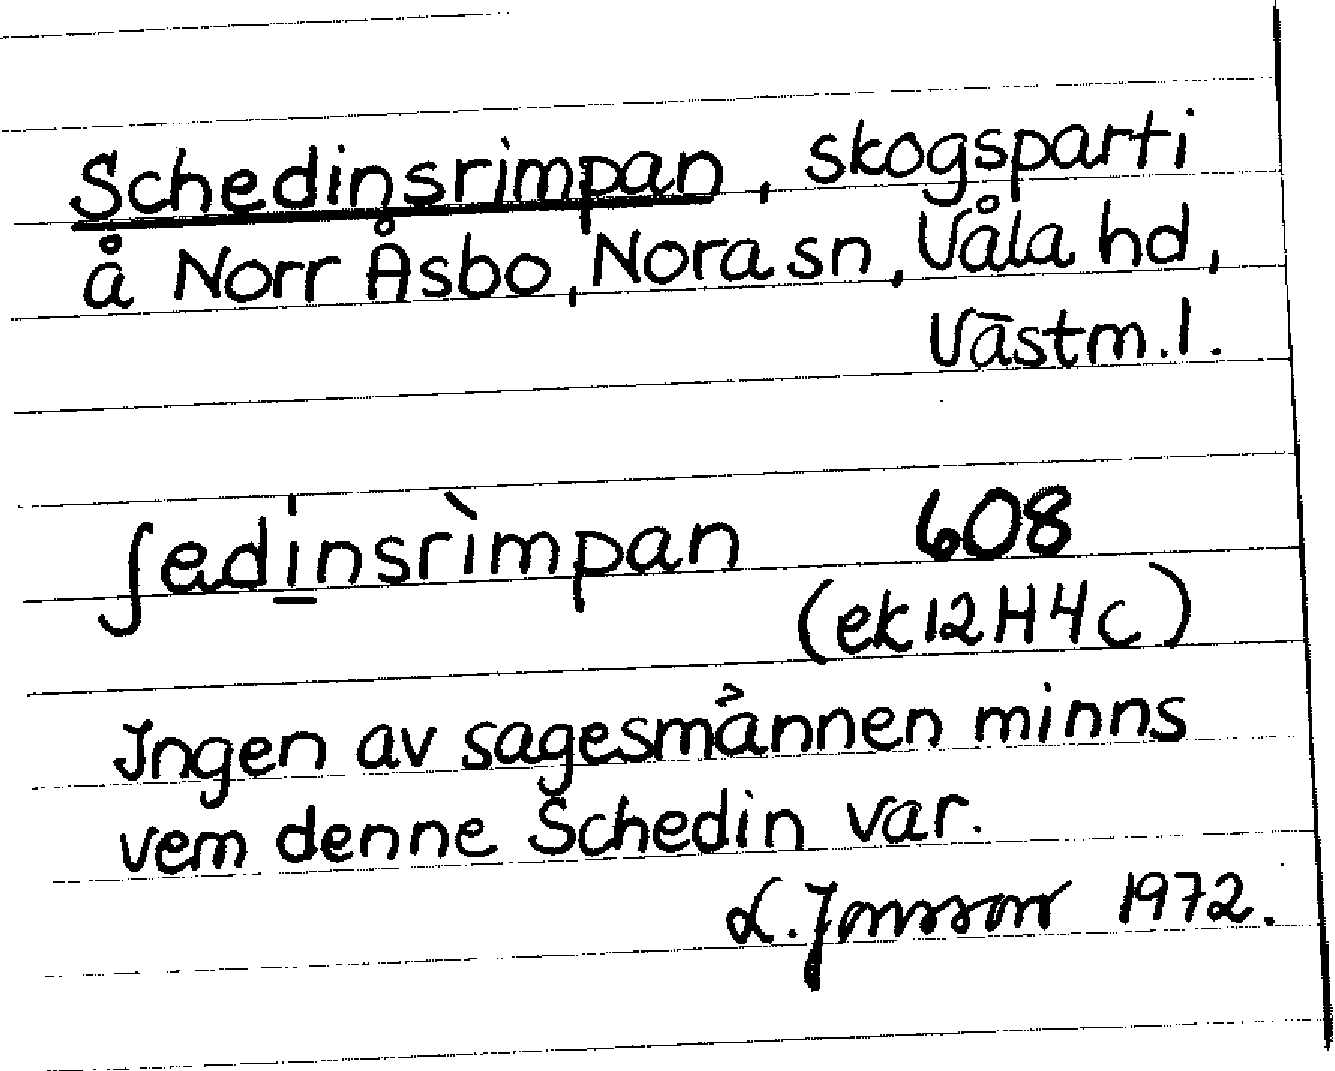 Schedinsrimpan, skogsparti
å Norr Åsbo, Nora sn, Våla hd,
Västm. l.
ʃedi̱̍nsrìmpan 608
(ek 12H4c)
Ingen av sagesmännen minns
vem denne Schedin var.
L. Jonsson 1972.